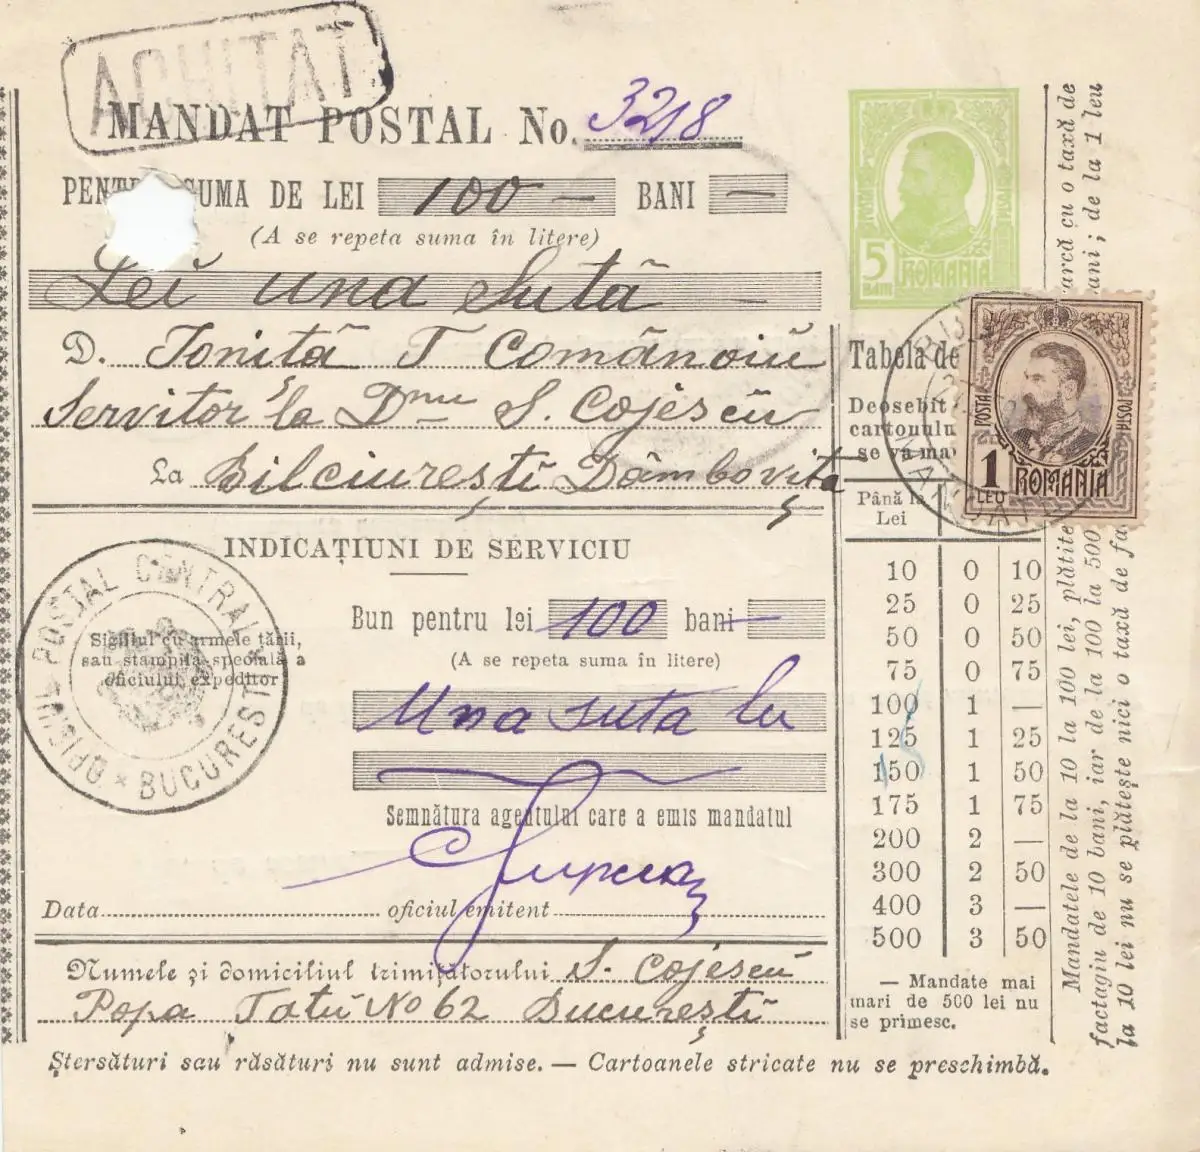 ACHITAT
MANDAT POSTAL No. 3218
SUMA DE LEI 100 — BANI —
(A se repeta suma în litere)
Leĭ una sută —
D. Ioniță T Comănoiŭ
Servitor la Dnu S. Cojescŭ
La Bilciurești Dâmbovița
INDICAȚIUNI DE SERVICIU
OFICIUL POSTAL CENTRAL
* BUCURESTI *
Sigiliul cu armele țării,
sau stampila specială a
oficiului expeditor
Bun pentru lei 100 bani —
(A se repeta suma în litere)
Una suta lei
Semnătura agentului care a emis mandatul
Data oficiul emitent
Numele și domiciliul trimițătorului S. Cojescŭ
Popa Tatŭ No 62 Bucureștĭ
Ștersături sau răsături nu sunt admise. — Cartoanele stricate nu se preschimbă.
POSTA POSTA
5
BANI
ROMANIA
POSTA POSTA
1
LEU
ROMANIA
MANDATE
Tabela de
Deosebit
cartonulu
se va ma
Până la
Lei
10 0 10
25 0 25
50 0 50
75 0 75
100 1 —
125 1 25
150 1 50
175 1 75
200 2 —
300 2 50
400 3 —
500 3 50
— Mandate mai
mari de 500 lei nu
se primesc.
Mandatele de la 10 la 100 lei, plătite arcă cu o taxă de
factagiu de 10 bani, iar de la 100 la 500 ani; de la 1 leu
la 10 lei nu se plătește nici o taxă de fa